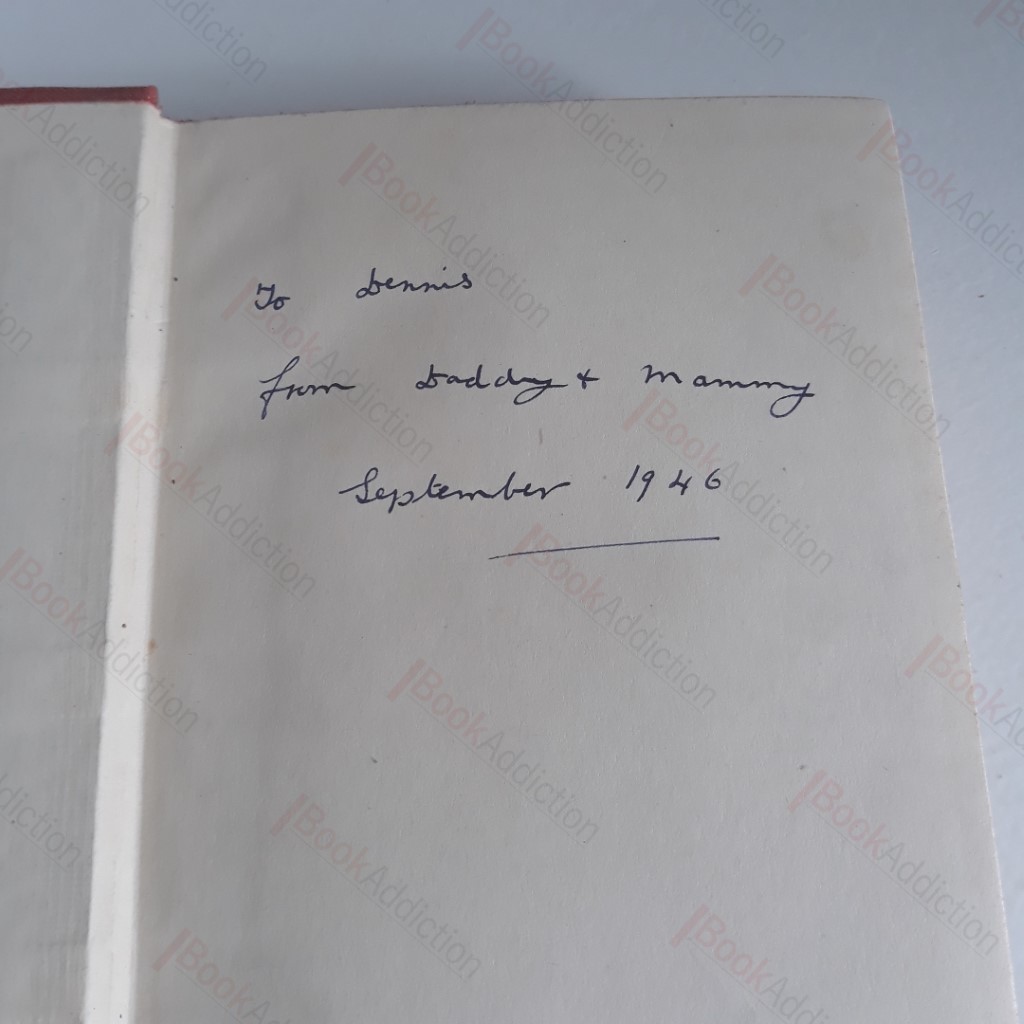 To Dennis
from Daddy & Mammy
September 1946
BookAddiction